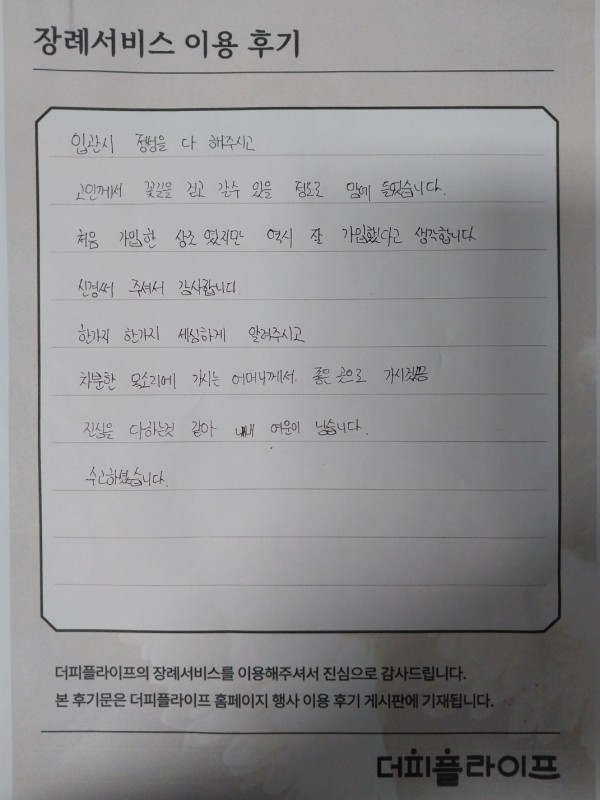 장례서비스 이용 후기
입관시 정성을 다 해주시고
고인께서 꽃길을 걷고 갈수 있을 정도로 맘에 들었습니다.
처음 가입한 상조 였지만 역시 잘 가입했다고 생각합니다
신경써 주셔서 감사합니다.
한가지 한가지 세심하게 알려주시고
차분한 목소리에 가시는 어머니께서 좋은 곳으로 가시겠끔
진심을 다하는것 같아 내내 여운이 남습니다.
수고하셨습니다.
더피플라이프의 장례서비스를 이용해주셔서 진심으로 감사드립니다.
본 후기문은 더피플라이프 홈페이지 행사 이용 후기 게시판에 기재됩니다.
더피플라이프